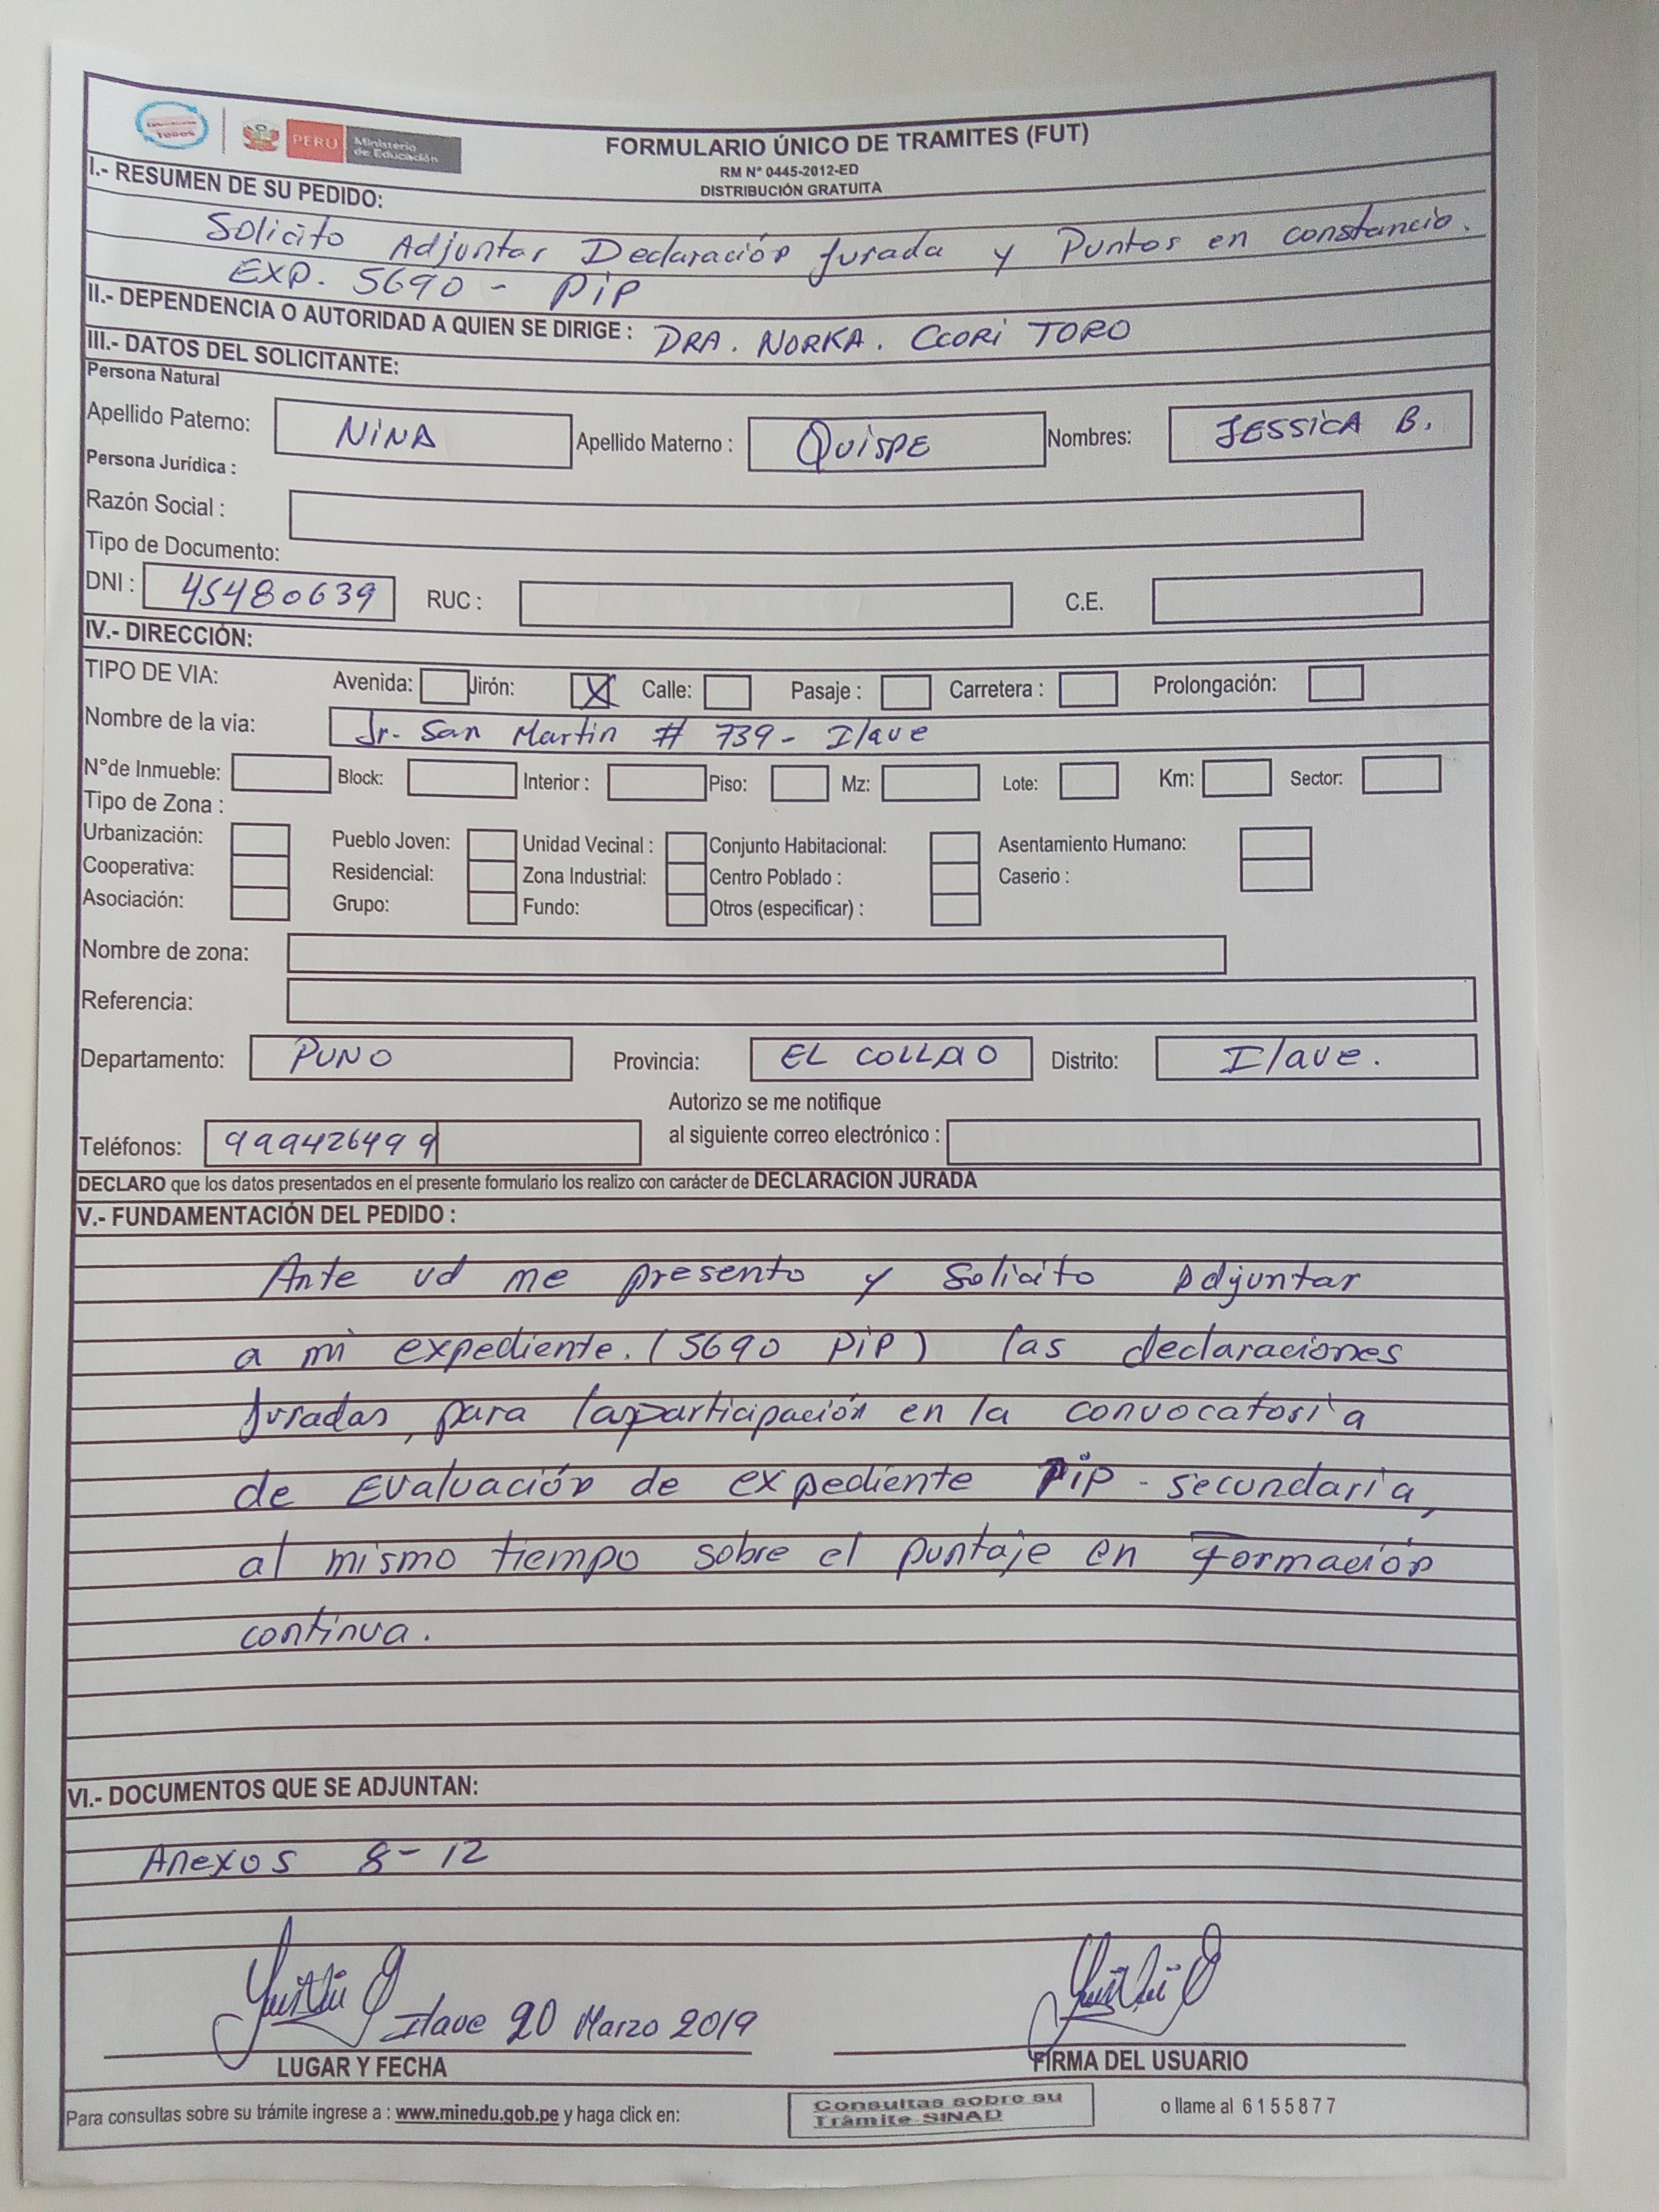 TODOS
PERÚ Ministerio de Educación
FORMULARIO ÚNICO DE TRAMITES (FUT)
RM N° 0445-2012-ED
DISTRIBUCIÓN GRATUITA
I.- RESUMEN DE SU PEDIDO:
Solicito Adjuntar Declaración Jurada y Puntos en constancia.
EXP. 5690 - PIP
II.- DEPENDENCIA O AUTORIDAD A QUIEN SE DIRIGE : DRA. NORKA. CCORI TORO
III.- DATOS DEL SOLICITANTE:
Persona Natural
Apellido Paterno: NINA Apellido Materno : QUISPE Nombres: JESSICA B.
Persona Jurídica :
Razón Social :
Tipo de Documento:
DNI : 45480639 RUC : C.E.
IV.- DIRECCIÓN:
TIPO DE VIA: Avenida: Jirón: X Calle: Pasaje : Carretera : Prolongación:
Nombre de la via: Jr. San Martin # 739 - Ilave
N°de Inmueble: Block: Interior : Piso: Mz: Lote: Km: Sector:
Tipo de Zona :
Urbanización: Pueblo Joven: Unidad Vecinal : Conjunto Habitacional: Asentamiento Humano:
Cooperativa: Residencial: Zona Industrial: Centro Poblado : Caserio :
Asociación: Grupo: Fundo: Otros (especificar) :
Nombre de zona:
Referencia:
Departamento: PUNO Provincia: EL COLLAO Distrito: Ilave.
Autorizo se me notifique
Teléfonos: 999426499 al siguiente correo electrónico :
DECLARO que los datos presentados en el presente formulario los realizo con carácter de DECLARACION JURADA
V.- FUNDAMENTACIÓN DEL PEDIDO :
Ante ud me presento y solicito Adjuntar
a mi expediente. (5690 PIP) las declaraciones
Juradas, para la participación en la convocatoria
de Evaluación de expediente PIP - secundaria,
al mismo tiempo sobre el puntaje en Formación
continua.
VI.- DOCUMENTOS QUE SE ADJUNTAN:
Anexos 8 - 12
Ilave 20 Marzo 2019
LUGAR Y FECHA FIRMA DEL USUARIO
Para consultas sobre su trámite ingrese a : www.minedu.gob.pe y haga click en: Consultas sobre su Trámite SINAD o llame al 6155877